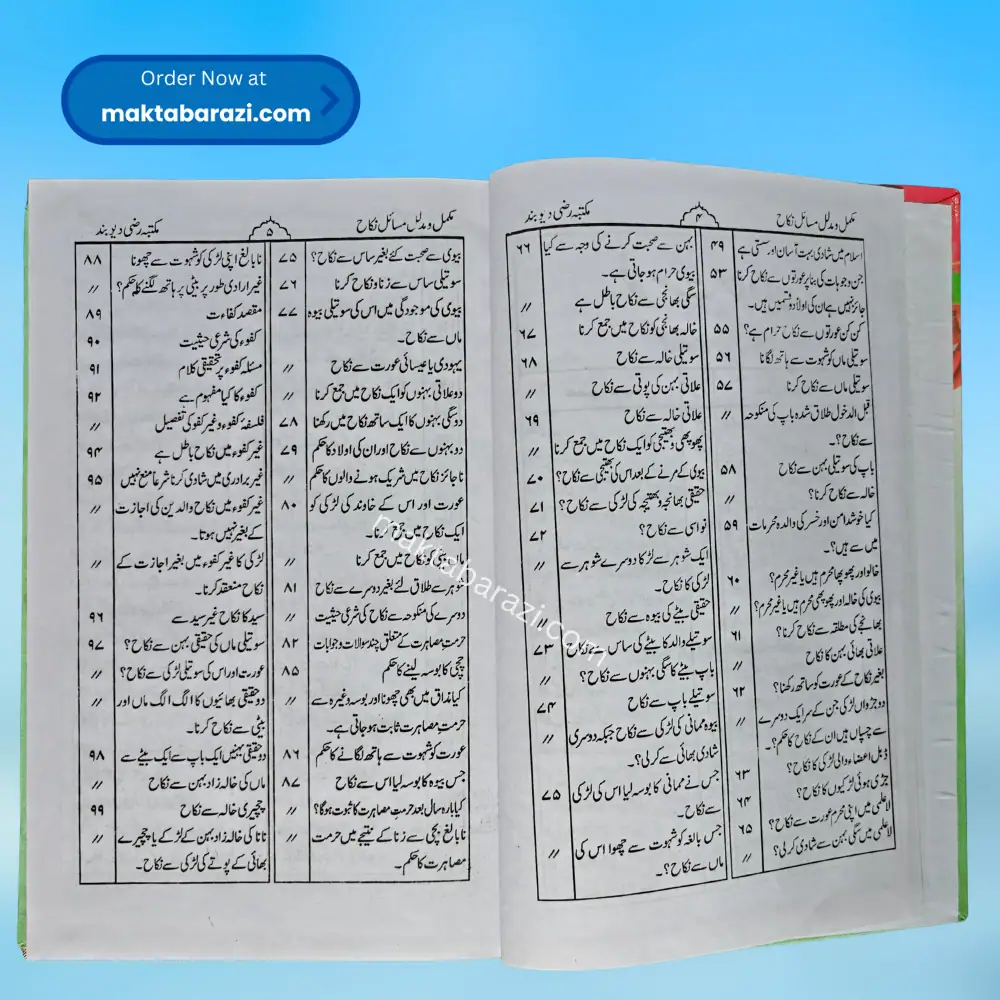 Order Now at
maktabarazi.com
مکمل و مدلل مسائل نکاح
۴
مکتبہ رضی دیوبند
اسلام میں شادی بہت آسان اور سستی ہے ۴۹
جن وجوہات کی بناپر عورتوں سے نکاح کرنا ۵۳
جائز نہیں ہے ان کی اولاً دو قسمیں ہیں۔
کن کن عورتوں سے نکاح حرام ہے؟ ۵۵
سوتیلی ماں کو شہوت سے ہاتھ لگانا ۵۶
سوتیلی ماں سے نکاح کرنا ۵۷
قبل الدخول طلاق شدہ باپ کی منکوحہ 〃
سے نکاح؟۔
باپ کی سوتیلی بہن سے نکاح ۵۸
خالہ سے نکاح کرنا؟ 〃
کیا خوشدامن اور خسر کی والدہ محرمات ۵۹
میں سے ہیں؟۔
خالو اور پھوپھا محرم ہیں یا غیر محرم؟ ۶۰
بیوی کی خالہ اور پھوپھی محرم ہیں یا غیر محرم؟ 〃
بھانجے کی مطلقہ سے نکاح کرنا؟ ۶۱
علاتی بھائی بہن کا نکاح 〃
بغیر نکاح کے عورت کو ساتھ رکھنا؟ ۶۲
دو جڑواں لڑکی جن کے سر ایک دوسرے 〃
سے چسپاں ہیں ان کے نکاح کا حکم؟۔
ڈبل اعضاء والی لڑکی کا نکاح؟ ۶۳
جڑی ہوئی لڑکیوں کا نکاح؟ ۶۴
لاعلمی میں اپنی محرم عورت سے نکاح؟ ۶۵
لاعلمی میں سگی بہن سے شادی کرلی؟ 〃
بہن سے صحبت کرنے کی وجہ سے کیا ۶۶
بیوی حرام ہوجاتی ہے۔
سگی بھانجی سے نکاح باطل ہے 〃
خالہ بھانجی کو نکاح میں جمع کرنا ۶۷
سوتیلی خالہ سے نکاح ۶۸
علاتی بہن کی پوتی سے نکاح 〃
علاتی خالہ سے نکاح ۶۹
پھوپھی و بھتیجی کو ایک نکاح میں جمع کرنا 〃
بیوی کے مرنے کے بعد اس کی بھتیجی سے نکاح؟ ۷۰
حقیقی بھانجہ و بھتیجہ کی لڑکی سے نکاح؟ ۷۱
نواسی سے نکاح؟ ۷۲
ایک شوہر سے لڑکا دوسرے شوہر سے 〃
لڑکی کا نکاح۔
حقیقی بیٹے کی بیوہ سے نکاح 〃
سوتیلے والد کا بیٹے کی ساس سے نکاح ۷۳
باپ بیٹے کا سگی بہنوں سے نکاح؟ 〃
سوتیلے باپ سے نکاح ۷۴
بیوہ ممانی کی لڑکی سے نکاح جبکہ دوسری 〃
شادی بھائی سے کرلی؟۔
جس نے ممانی کا بوسہ لیا اس کی لڑکی ۷۵
سے نکاح۔
جس بالغہ کو شہوت سے چھوا اس کی 〃
ماں سے نکاح؟۔
مکمل و مدلل مسائل نکاح
۵
مکتبہ رضی دیوبند
بیوی سے صحبت کئے بغیر ساس سے نکاح؟ ۷۵
سوتیلی ساس سے زنا و نکاح کرنا ۷۶
بیوی کی موجودگی میں اس کی سوتیلی بیوہ ۷۷
ماں سے نکاح۔
یہودی یا عیسائی عورت سے نکاح 〃
دو علاتی بہنوں کو ایک نکاح میں جمع کرنا 〃
دو سگی بہنوں کا ایک ساتھ نکاح میں رکھنا ۷۸
دو بہنوں سے نکاح اور ان کی اولاد کا حکم ۷۹
ناجائز نکاح میں شریک ہونے والوں کا حکم 〃
عورت اور اس کے خاوند کی لڑکی کو ۸۰
ایک نکاح میں جمع کرنا۔
ماں بیٹی کو نکاح میں جمع کرنا 〃
شوہر سے طلاق لئے بغیر دوسرے سے نکاح ۸۱
دوسرے کی منکوحہ سے نکاح کی شرعی حیثیت 〃
حرمتِ مصاہرت کے متعلق چند سوالات و جوابات ۸۲
چچی کا بوسہ لینے کا حکم ۸۵
کیا مذاق میں بھی چھونا اور بوسہ وغیرہ سے 〃
حرمتِ مصاہرت ثابت ہوجاتی ہے۔
عورت کو شہوت سے ہاتھ لگانے کا حکم ۸۶
جس بیوہ کا بوسہ لیا اس سے نکاح ۸۷
کیا بارہ سال بعد حرمتِ مصاہرت کا ثبوت ہوگا؟ 〃
نابالغ بچی سے زنا کے نتیجے میں حرمت 〃
مصاہرت کا حکم۔
نابالغ اپنی لڑکی کو شہوت سے چھونا ۸۸
غیر ارادی طور پر بیٹی پر ہاتھ لگنے کا حکم؟ 〃
مقصدِ کفاءت ۸۹
کفوء کی شرعی حیثیت ۹۰
مسئلہ کفوء پر تحقیقی کلام ۹۱
کفوء کا کیا مفہوم ہے ۹۲
فلسفۂ کفوء و غیر کفوء کی تفصیل 〃
غیر کفوء میں نکاح باطل ہے ۹۴
غیر برادری میں شادی کرنا شرعاً منع نہیں ۹۵
غیر کفوء میں نکاح والدین کی اجازت 〃
کے بغیر نہیں ہوتا۔
لڑکی کا غیر کفوء میں بغیر اجازت کے 〃
نکاح منعقد کرنا۔
سید کا نکاح غیر سید سے ۹۶
سوتیلی ماں کی حقیقی بہن سے نکاح؟ ۹۷
عورت اور اس کی سوتیلی لڑکی سے نکاح؟ 〃
دو حقیقی بھائیوں کا الگ الگ ماں اور 〃
بیٹی سے نکاح کرنا۔
دو حقیقی بہنیں ایک باپ سے ایک بیٹے سے ۹۸
ماں کی خالہ زاد بہن سے نکاح 〃
چچیری خالہ سے نکاح ۹۹
نانا کی خالہ زاد بہن کے لڑکے یا چچیرے 〃
بھائی کے پوتے کی لڑکی سے نکاح۔
maktabarazi.com